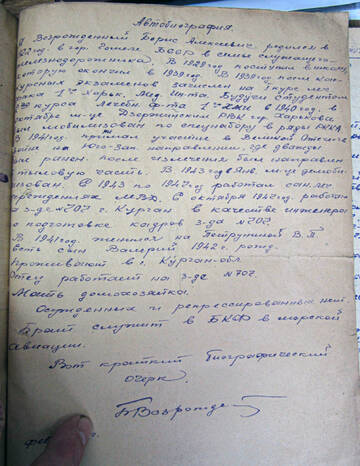 Автобиография
Я Возрожденный Борис Алексеевич родился в
году в гор. Гомеле БССР в семье служащего
железнодорожника. В 1929 году поступил в школу
которую окончил в 1939 год. В 1939 году после кон-
курсных экзаменов зачислен на 1 курс лес
1го Харьк. Мед. Ин-та. Будучи студентом
курса Лечебн. ф-та 1го ХМИ в 1940 год. в
м-це Дзержинским РВК гор. Харькова
мобилизован по спецнабору в ряды РККА
В 1941 год. принимал участие в Великой Отечеств
войне на Юго-Зап. направлении, где дважды
ранен, после излечения был направлен
тыловую часть. В 1943 году Янв. м-це демоби-
лизован. С 1943 по 1947 год работал
МВД. С октября 1947 год. работаю
з-де №707 г. Курган в качестве инженера
по подготовке кадров з-да №707
В 1941 год. женился на Петруниной В. П.
есть сын Валерий 1942 г. рожд.
Проживают в г. Курган-обл.
Отец работает на з-де №707.
Мать домохозяйка.
Осужденных и репрессированных нет
Брат служит в БКФ в морской
авиации.
Вот краткий биографический
очерк.